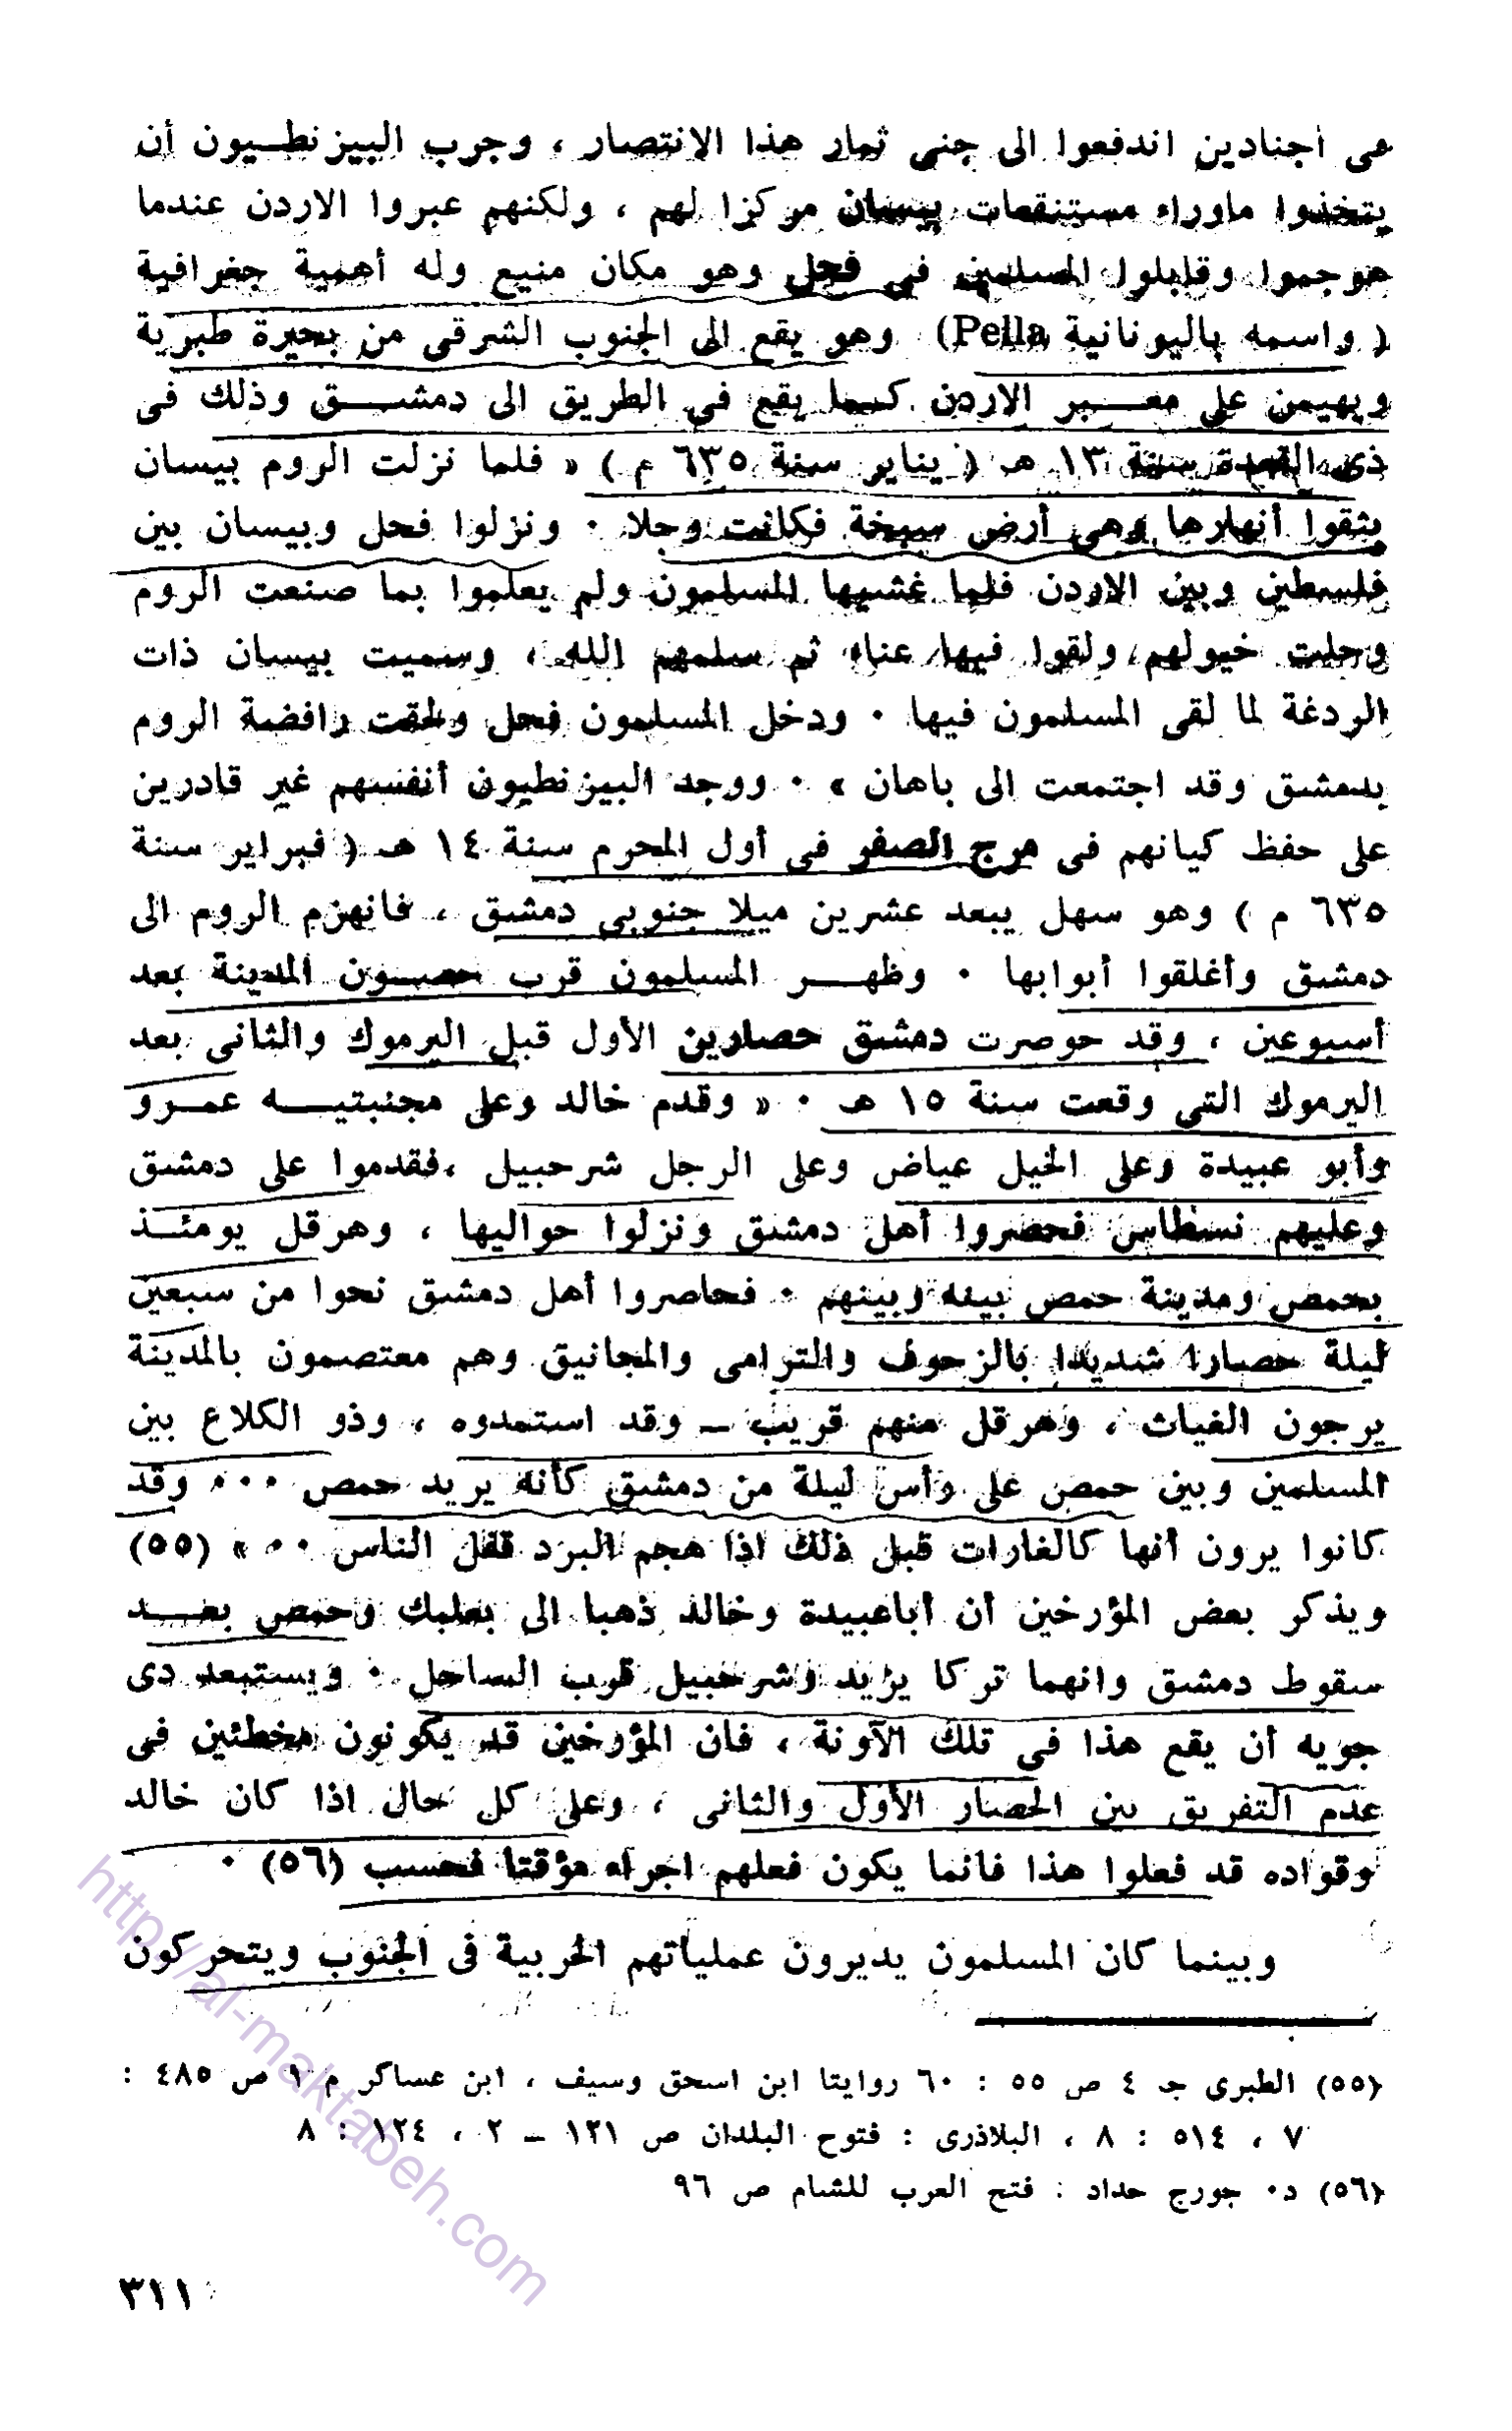 فى أجنادين اندفعوا الى جنى ثمار هذا الانتصار ، وجرب البيزنطيون أن
يتخذوا ماوراء مستنقعات بيسان مركزا لهم ، ولكنهم عبروا الاردن عندما
هوجموا وقابلوا المسلمين فى فحل وهو مكان منيع وله أهمية جغرافية
( واسمه باليونانية Pella) وهو يقع الى الجنوب الشرقى من بحيرة طبرية
ويهيمن على معبر الاردن كما يقع فى الطريق الى دمشق وذلك فى
ذى القعدة سنة ١٣ هـ ( يناير سنة ٦٣٥ م ) « فلما نزلت الروم بيسان
بثقوا أنهارها وهى أرض سبخة فكانت وحلا ٠ ونزلوا فحل وبيسان بين
فلسطين وبين الاردن فلما غشيها المسلمون ولم يعلموا بما صنعت الروم
وحلت خيولهم ولقوا فيها عناء ثم سلمهم الله ، وسميت بيسان ذات
الردغة لما لقى المسلمون فيها ٠ ودخل المسلمون فحل ولحقت رافضة الروم
بدمشق وقد اجتمعت الى باهان » ٠ ووجد البيزنطيون أنفسهم غير قادرين
على حفظ كيانهم فى مرج الصفر فى أول المحرم سنة ١٤ هـ ( فبراير سنة
٦٣٥ م ) وهو سهل يبعد عشرين ميلا جنوبى دمشق ، فانهزم الروم الى
دمشق وأغلقوا أبوابها ٠ وظهر المسلمون قرب حصون المدينة بعد
أسبوعين ، وقد حوصرت دمشق حصارين الأول قبل اليرموك والثانى بعد
اليرموك التى وقعت سنة ١٥ هـ ٠ « وقدم خالد وعلى مجنبتيه عمرو
وأبو عبيدة وعلى الخيل عياض وعلى الرجل شرحبيل ،فقدموا على دمشق
وعليهم نسطاس فحصروا أهل دمشق ونزلوا حواليها ، وهرقل يومئذ
بحمص ومدينة حمص بينه وبينهم ٠ فحاصروا أهل دمشق نحوا من سبعين
ليلة حصارا شديدا بالزحوف والترامى والمجانيق وهم معتصمون بالمدينة
يرجون الغياث ، وهرقل منهم قريب ــ وقد استمدوه ، وذو الكلاع بين
المسلمين وبين حمص على رأس ليلة من دمشق كأنه يريد حمص ٠٠٠ وقد
كانوا يرون أنها كالغارات قبل ذلك اذا هجم البرد قفل الناس ٠٠ » (٥٥)
ويذكر بعض المؤرخين أن أباعبيدة وخالد ذهبا الى بعلبك وحمص بعد
سقوط دمشق وانهما تركا يزيد وشرحبيل قرب الساحل ٠ ويستبعد دى
جويه أن يقع هذا فى تلك الآونة ، فان المؤرخين قد يكونون مخطئين فى
عدم التفريق بين الحصار الأول والثانى ، وعلى كل حال اذا كان خالد
وقواده قد فعلوا هذا فانما يكون فعلهم اجراء مؤقتا فحسب (٥٦) ٠
وبينما كان المسلمون يديرون عملياتهم الحربية فى الجنوب ويتحركون
(٥٥) الطبرى جـ ٤ ص ٥٥ : ٦٠ روايتا ابن اسحق وسيف ، ابن عساكر م ١ ص ٤٨٥ :
٧ ، ٥١٤ : ٨ ، البلاذرى : فتوح البلدان ص ١٢١ ــ ٢ ، ١٢٤ : ٨
(٥٦) د٠ جورج حداد : فتح العرب للشام ص ٩٦
٣١١
http://al-maktabeh.com